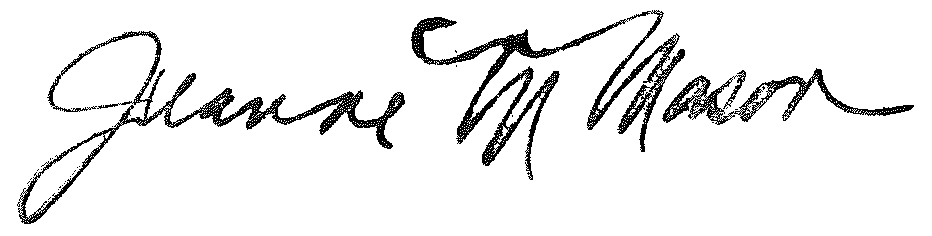 Jeanne M Mason